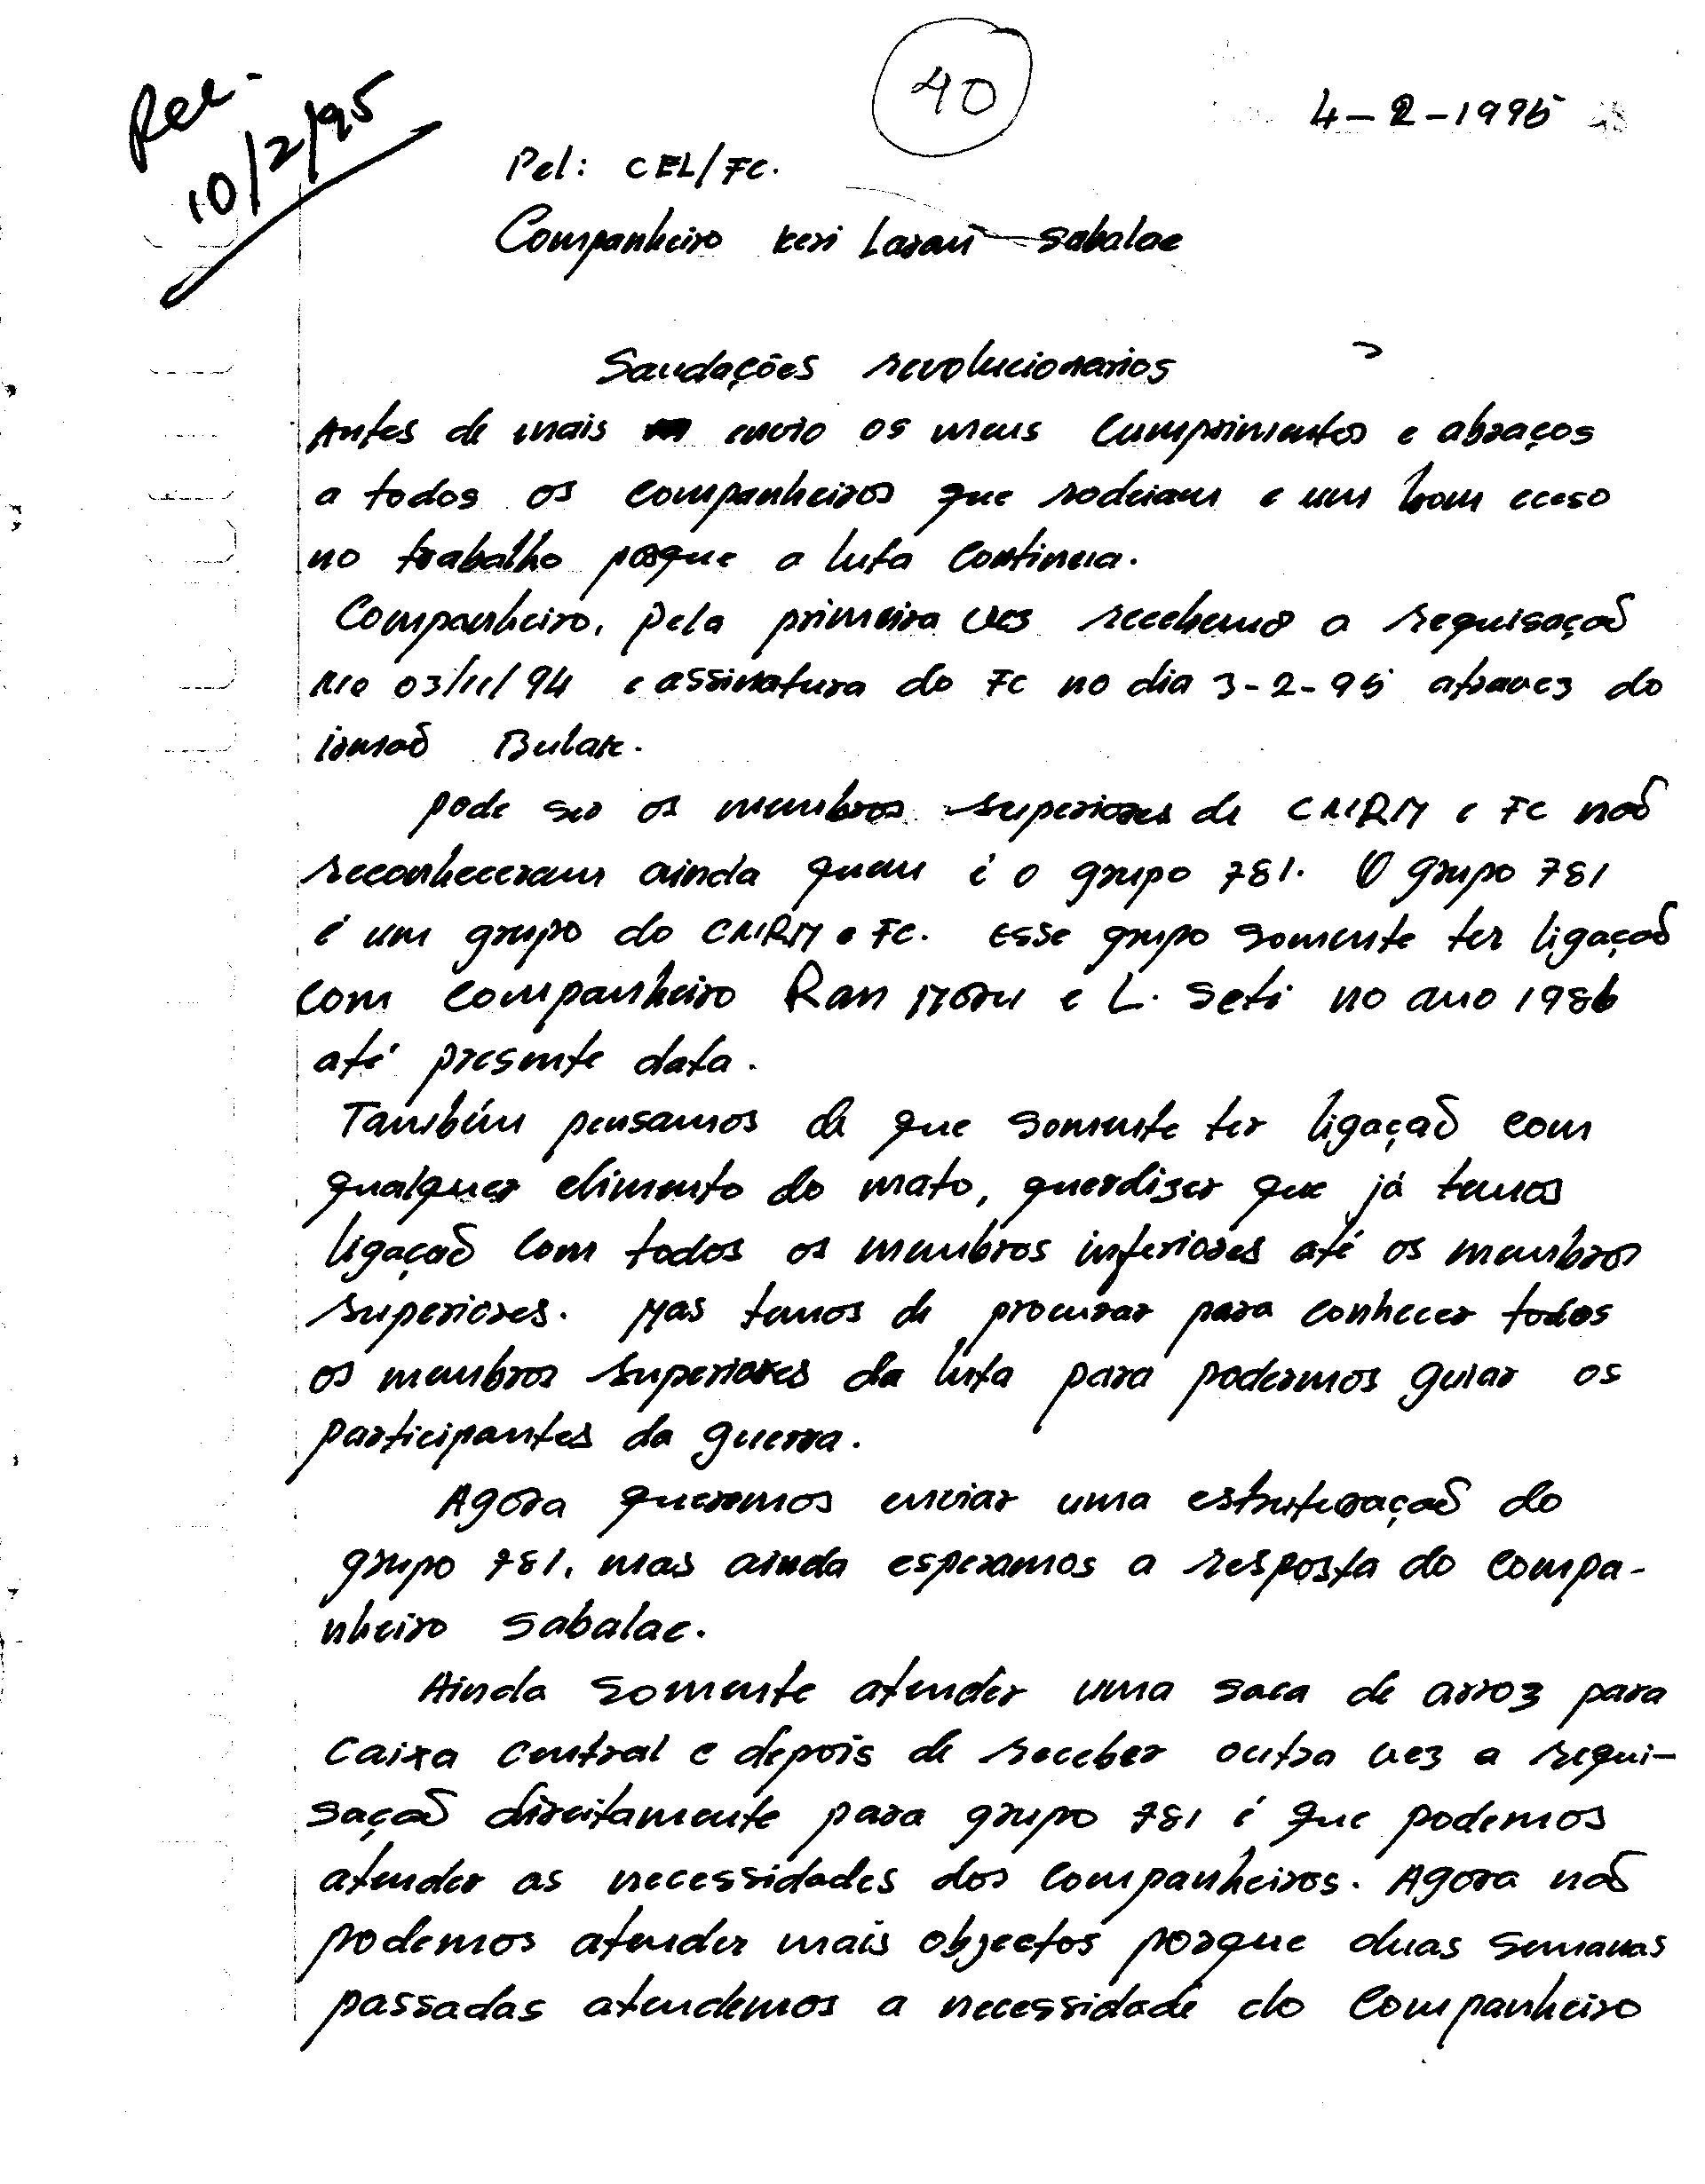 Rec-
10/2/95
40
4-2-1995
Pel: CEL/FC.
Companheiro Keri Laran Sabalae
Saudações revolucionarios
Antes de mais envio os meus cumprimentos e abraços
a todos os companheiros que rodeiam e um bom
no trabalho porque a luta continua.
Companheiro, pela primeira ves recebemos a requisaçaõ
no 03/11/94 e assinatura do FC no dia 3-2-95 atravez do
irmaõ Bulak.
pode ser os membros superiores de CNRM e FC naõ
reconheceram ainda quem é o grupo 781. O grupo 781
é um grupo do CNRM e FC. Esse grupo somente ter ligaçaõ
com companheiro Ran Moru e L. Seti no ano 1986
até presente data.
Também pensamos de que somente ter ligaçaõ com
qualquer elimento do mato, querdiser que já temos
ligaçaõ com todos os membros inferiores até os membros
superiores. Mas temos de procurar para conhecer todos
os membros superiores da luta para podermos guiar os
participantes da guerra.
Agora queremos enviar uma estruturaçaõ do
grupo 781, mas ainda esperamos a resposta do compa-
nheiro Sabalae.
Ainda somente atender uma saca de arroz para
Caixa Central e depois de receber outra vez a requi-
saçaõ direitamente para grupo 781 é que podemos
atender as necessidades dos companheiros. Agora naõ
podemos atender mais objectos porque duas semanas
passadas atendemos a necessidade do companheiro